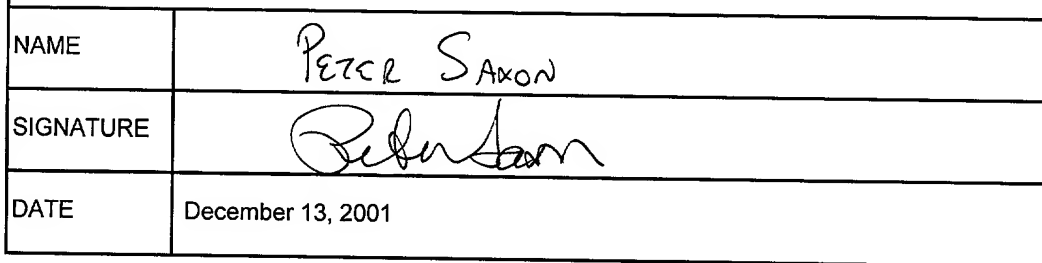 NAME PETER SAXON
SIGNATURE Peter Saxon
DATE December 13, 2001